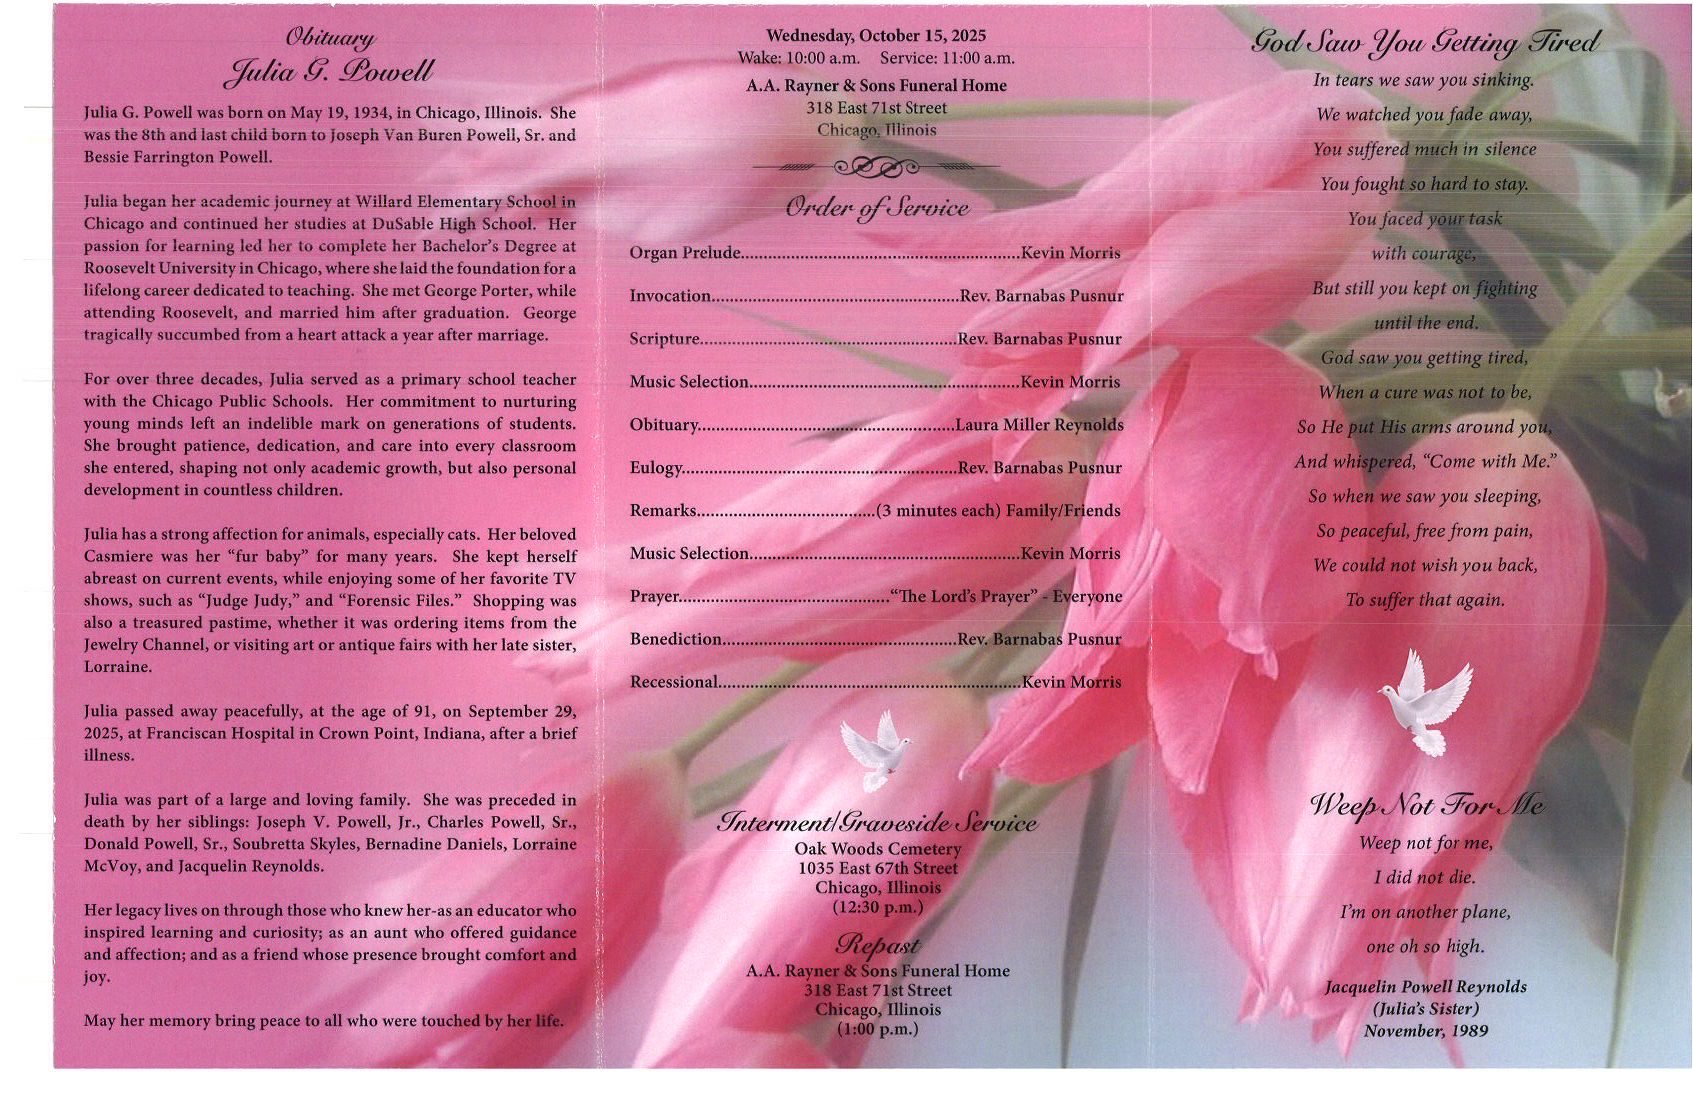 Obituary
Julia G. Powell
Julia G. Powell was born on May 19, 1934, in Chicago, Illinois. She
was the 8th and last child born to Joseph Van Buren Powell, Sr. and
Bessie Farrington Powell.
Julia began her academic journey at Willard Elementary School in
Chicago and continued her studies at DuSable High School. Her
passion for learning led her to complete her Bachelor's Degree at
Roosevelt University in Chicago, where she laid the foundation for a
lifelong career dedicated to teaching. She met George Porter, while
attending Roosevelt, and married him after graduation. George
tragically succumbed from a heart attack a year after marriage.
For over three decades, Julia served as a primary school teacher
with the Chicago Public Schools. Her commitment to nurturing
young minds left an indelible mark on generations of students.
She brought patience, dedication, and care into every classroom
she entered, shaping not only academic growth, but also personal
development in countless children.
Julia has a strong affection for animals, especially cats. Her beloved
Casmiere was her “fur baby” for many years. She kept herself
abreast on current events, while enjoying some of her favorite TV
shows, such as “Judge Judy,” and “Forensic Files.” Shopping was
also a treasured pastime, whether it was ordering items from the
Jewelry Channel, or visiting art or antique fairs with her late sister,
Lorraine.
Julia passed away peacefully, at the age of 91, on September 29,
2025, at Franciscan Hospital in Crown Point, Indiana, after a brief
illness.
Julia was part of a large and loving family. She was preceded in
death by her siblings: Joseph V. Powell, Jr., Charles Powell, Sr.,
Donald Powell, Sr., Soubretta Skyles, Bernadine Daniels, Lorraine
McVoy, and Jacquelin Reynolds.
Her legacy lives on through those who knew her-as an educator who
inspired learning and curiosity; as an aunt who offered guidance
and affection; and as a friend whose presence brought comfort and
joy.
May her memory bring peace to all who were touched by her life.
Wednesday, October 15, 2025
Wake: 10:00 a.m. Service: 11:00 a.m.
A.A. Rayner & Sons Funeral Home
318 East 71st Street
Chicago, Illinois
Order of Service
Organ Prelude..........Kevin Morris
Invocation..........Rev. Barnabas Pusnur
Scripture..........Rev. Barnabas Pusnur
Music Selection..........Kevin Morris
Obituary..........Laura Miller Reynolds
Eulogy..........Rev. Barnabas Pusnur
Remarks..........(3 minutes each) Family/Friends
Music Selection..........Kevin Morris
Prayer..........“The Lord's Prayer” - Everyone
Benediction..........Rev. Barnabas Pusnur
Recessional..........Kevin Morris
Interment/Graveside Service
Oak Woods Cemetery
1035 East 67th Street
Chicago, Illinois
(12:30 p.m.)
Repast
A.A. Rayner & Sons Funeral Home
318 East 71st Street
Chicago, Illinois
(1:00 p.m.)
God Saw You Getting Tired
In tears we saw you sinking.
We watched you fade away,
You suffered much in silence
You fought so hard to stay.
You faced your task
with courage,
But still you kept on fighting
until the end.
God saw you getting tired,
When a cure was not to be,
So He put His arms around you,
And whispered, “Come with Me.”
So when we saw you sleeping,
So peaceful, free from pain,
We could not wish you back,
To suffer that again.
Weep Not For Me
Weep not for me,
I did not die.
I'm on another plane,
one oh so high.
Jacquelin Powell Reynolds
(Julia's Sister)
November, 1989